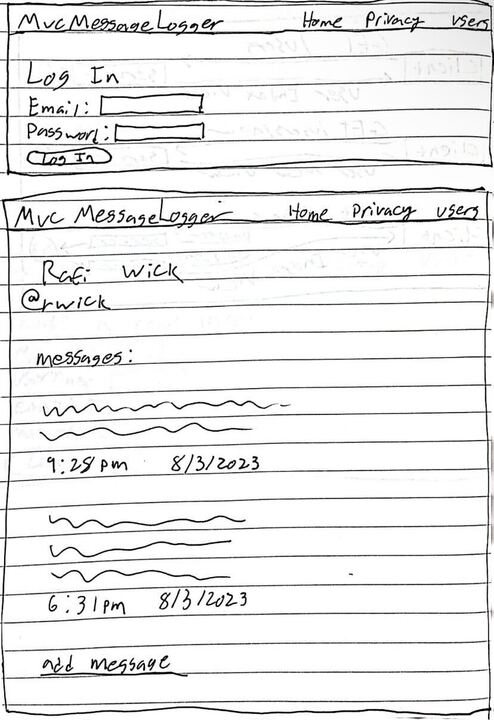 MvcMessageLogger Home Privacy users
Log In
Email:
Password:
Log In
Mvc MessageLogger Home Privacy users
Rafi Wick
@rwick
messages:
9:28pm 8/3/2023
6:31pm 8/3/2023
add message